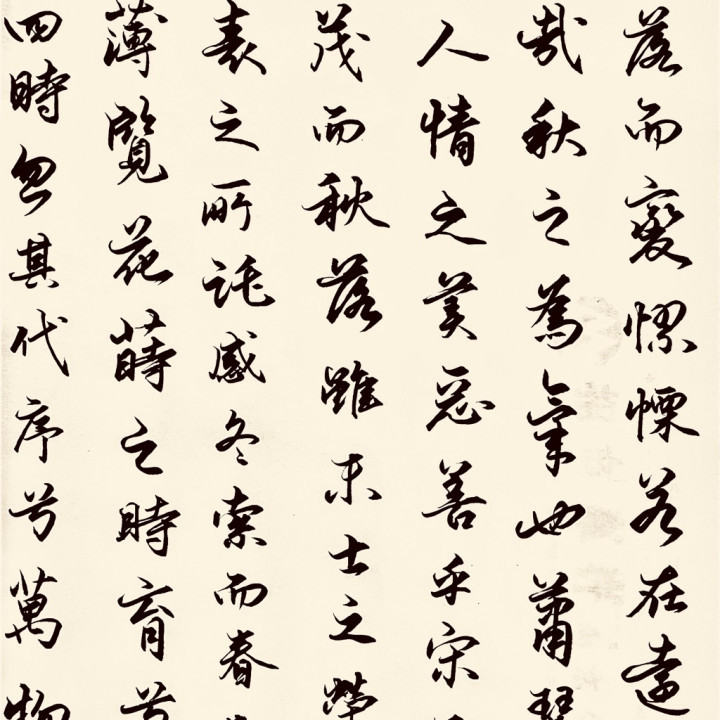 四時忽其代序兮萬物
薄覽花蒔之時育兮
衰之所託感冬索而春
茂而秋落雖末士之榮
人情之美惡善乎宋
哉秋之為氣也蕭瑟
落而變憭慄若在遠